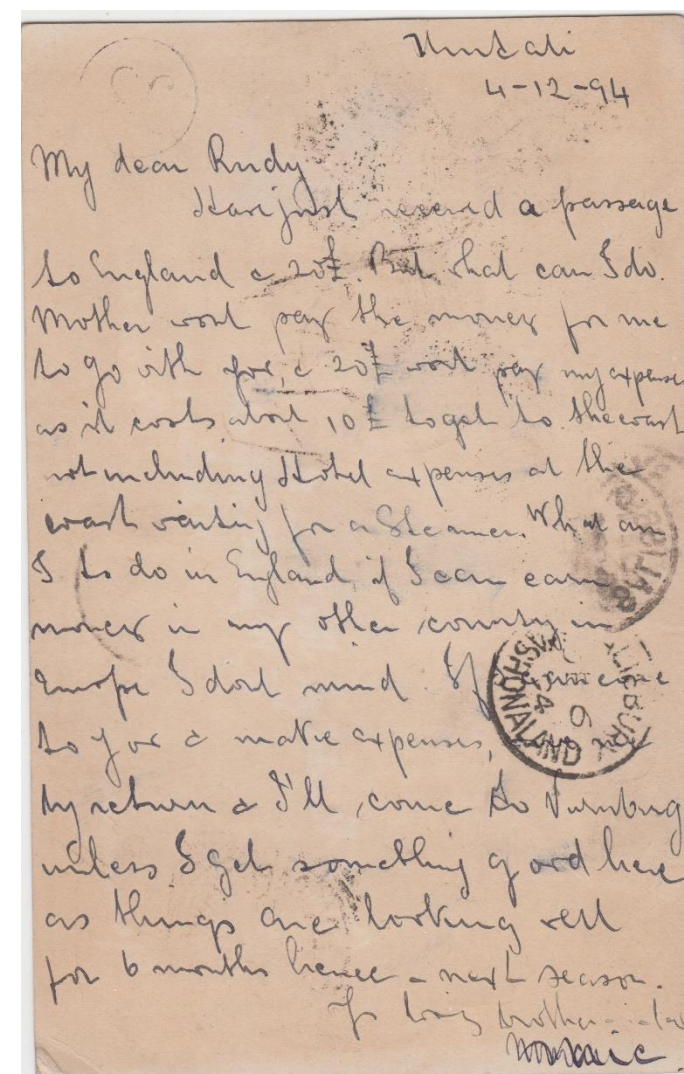 Umtali
4-12-94
My dear Rudy
Have just received a passage
to England & 20£. But what can I do.
Mother wont pay the money for me
to go with you, & 20£ wont pay my expenses
as it costs about 10£ to get to the coast
not including Hotel expenses at the
coast waiting for a Steamer. What am
I to do in England, if I can earn
money in any other country in
Europe I dont mind. If
to you & make expenses,
by return & I'll come to Nurnburg
unless I get something good here
as things are looking well
for 6 months hence - next season.
Yr loving brother
SALISBURY
MASHONALAND
6
94